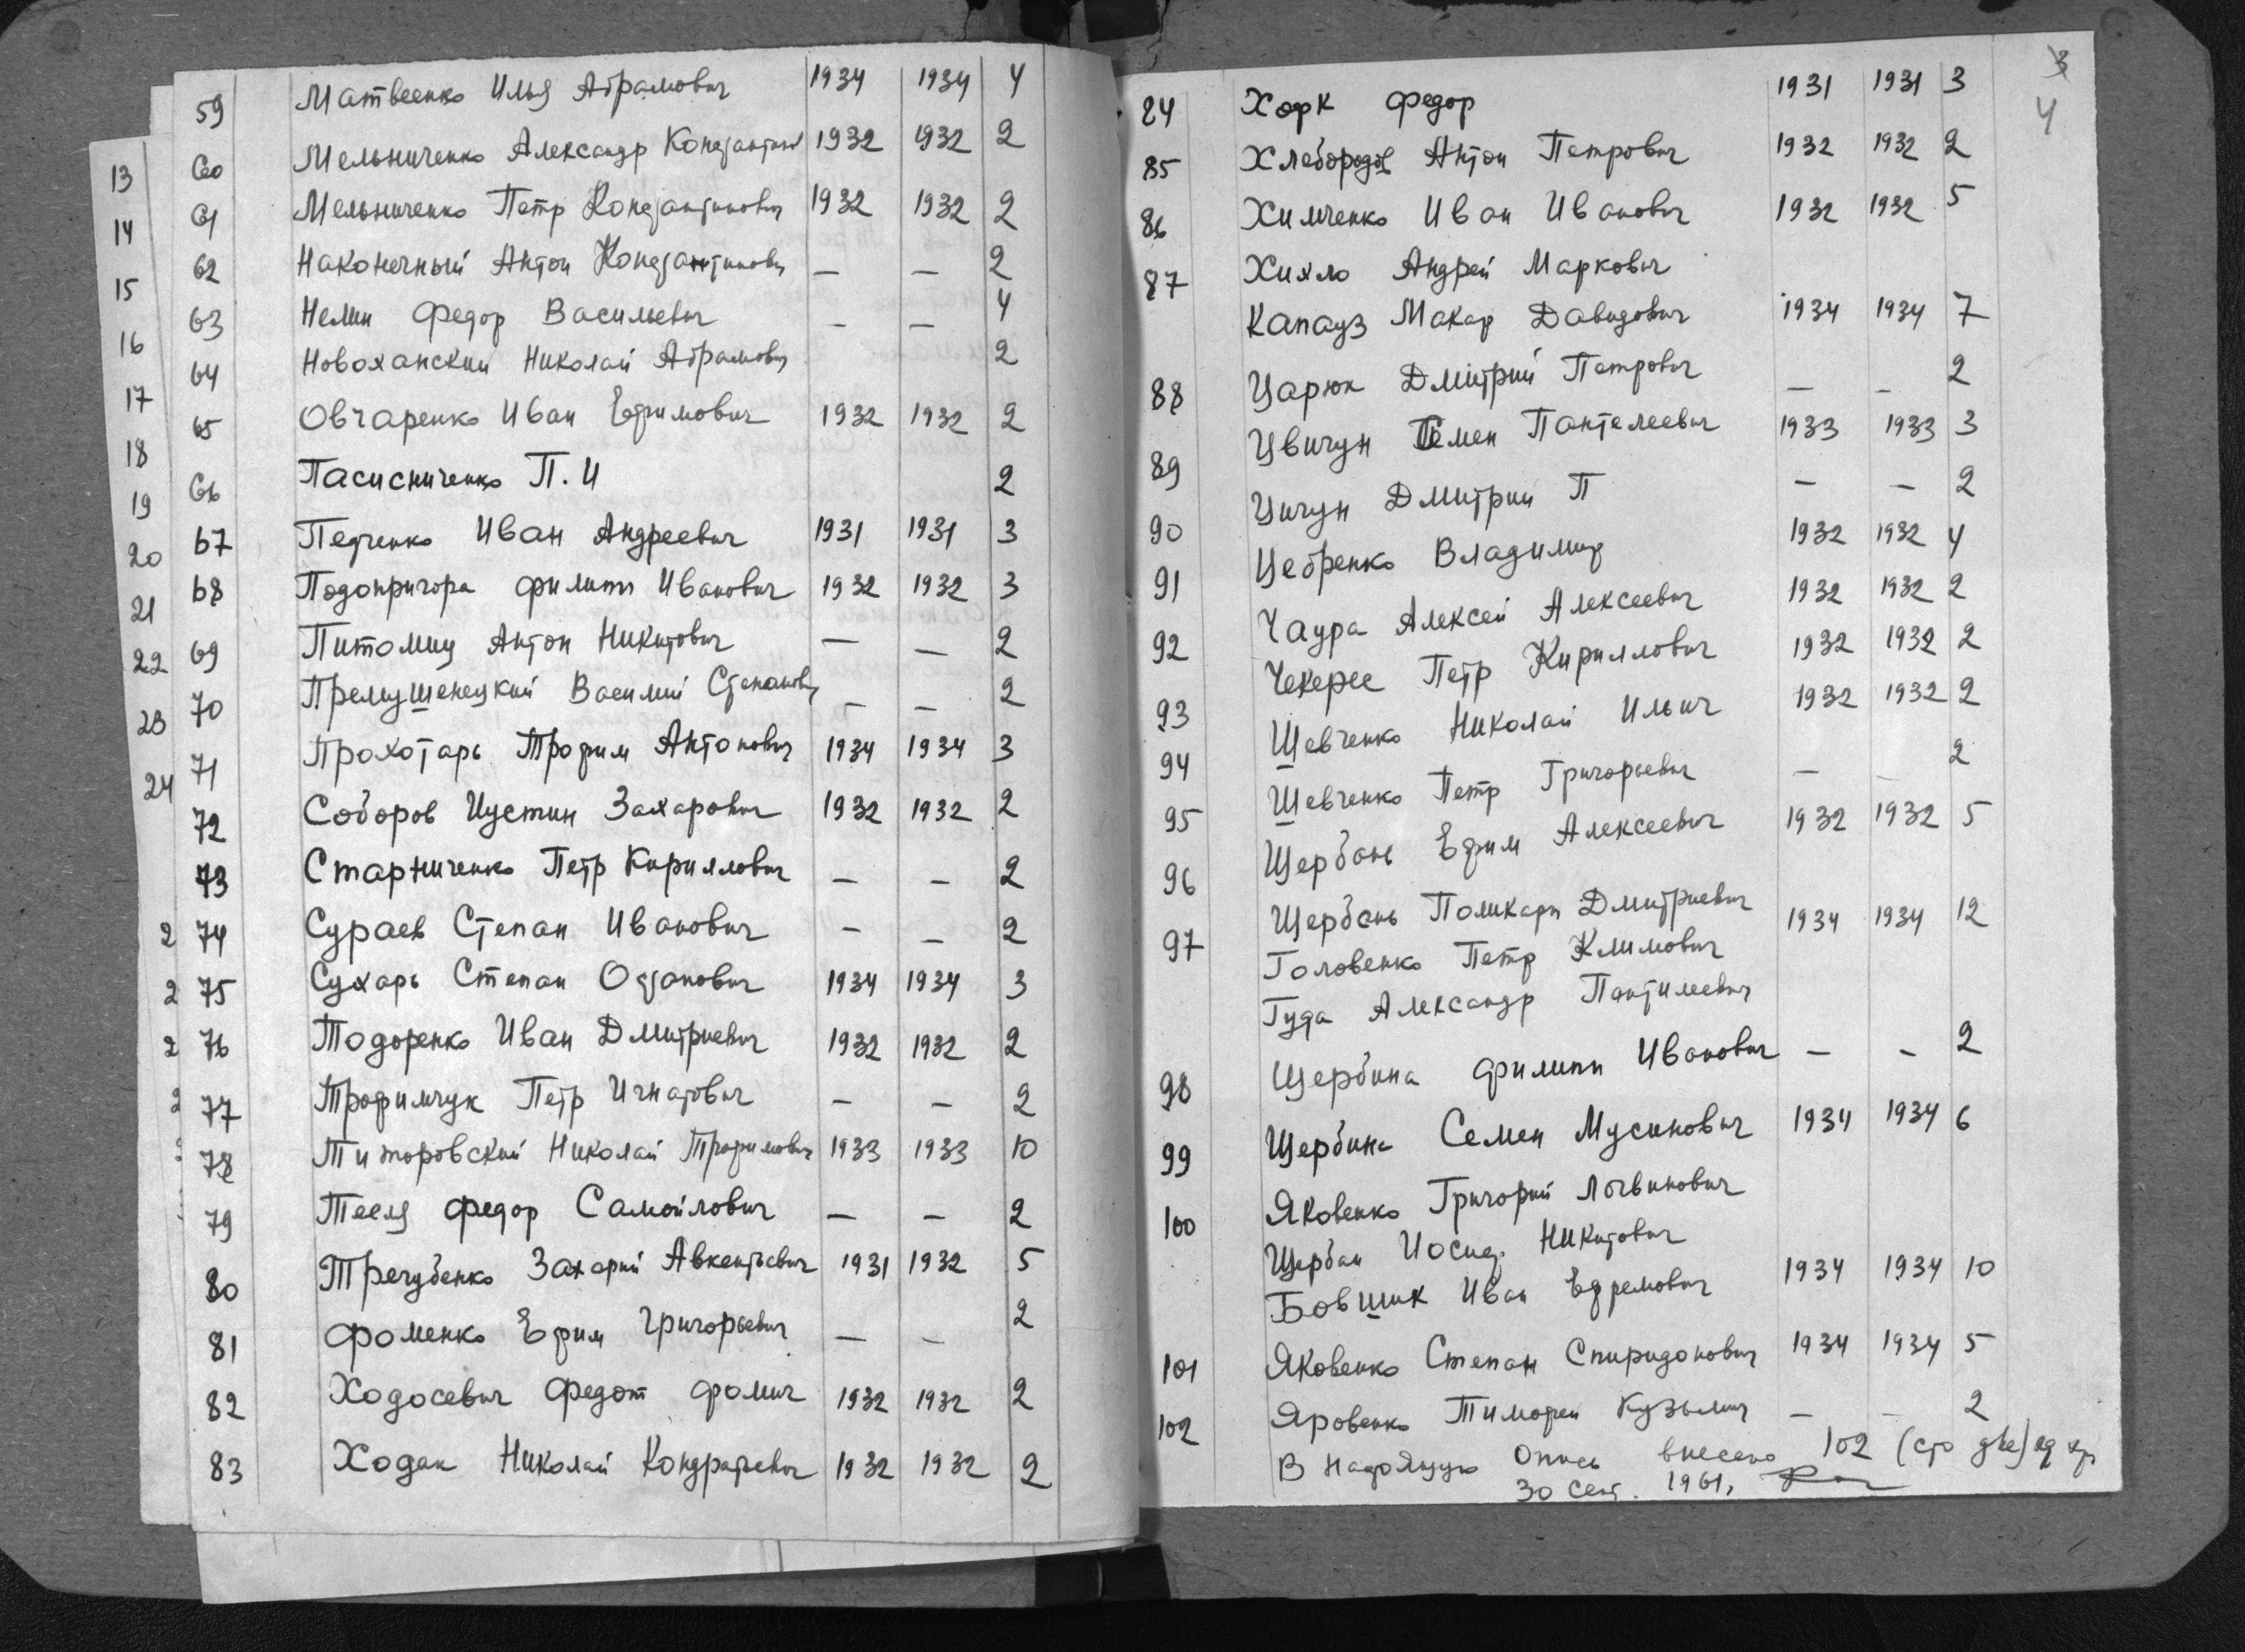 59 Матвеенко Илья Абрамович 1934 1934 4
60 Мельниченко Александр Константинов 1932 1932 2
61 Мельниченко Петр Константинович 1932 1932 2
62 Наконечный Антон Константинович — — 2
63 Немин Федор Васильевич — — 4
64 Новоханский Николай Абрамович 2
65 Овчаренко Иван Ефимович 1932 1932 2
66 Пасисниченко П. И 2
67 Педченко Иван Андреевич 1931 1931 3
68 Подопригора Филипп Иванович 1932 1932 3
69 Питомиц Антон Никитович — — 2
70 Премушенецкий Василий Степанович — — 2
71 Прохотарь Трофим Антонович 1934 1934 3
72 Соборов Иустин Захарович 1932 1932 2
73 Старниченко Петр Кириллович — — 2
74 Сураев Степан Иванович — — 2
75 Сухарь Степан Остапович 1934 1934 3
76 Тодоренко Иван Дмитриевич 1932 1932 2
77 Трофимчук Петр Игнатович — — 2
78 Титоровский Николай Трофимович 1933 1933 10
79 Тееля Федор Самойлович — — 2
80 Трегубенко Захарий Авкентьевич 1931 1932 5
81 Фоменко Ефим Григорьевич — — 2
82 Ходосевич Федот Фомич 1932 1932 2
83 Ходак Николай Кондратьевич 1932 1932 2
13
14
15
16
17
18
19
20
21
22
23
24
2
2
2
2
3
4
84 Хорк Федор 1931 1931 3
85 Хлебородов Антон Петрович 1932 1932 2
86 Химченко Иван Иванович 1932 1932 5
87 Хихло Андрей Маркович
Капауз Макар Давидович 1934 1934 7
88 Царюк Дмитрий Петрович — — 2
89 Цвичун Семен Пантелеевич 1933 1933 3
90 Цичун Дмитрий П — — 2
91 Цебренко Владимир 1932 1932 4
92 Чаура Алексей Алексеевич 1932 1932 2
Чекерес Петр Кириллович 1932 1932 2
93 Шевченко Николай Ильич 1932 1932 2
94 Шевченко Петр Григорьевич — — 2
95 Щербань Ефим Алексеевич 1932 1932 5
96 Щербань Поликарп Дмитриевич 1934 1934 12
97 Головенко Петр Климович
Гуда Александр Пантилеевич
98 Щербина Филипп Иванович — — 2
99 Щербина Семен Мусинович 1934 1934 6
100 Яковенко Григорий Логвинович
Щербан Иосиф Никитович
Бовшик Иван Ефремович 1934 1934 10
101 Яковенко Степан Спиридонович 1934 1934 5
102 Яровенко Тимофей Кузьмич — — 2
В настоящую опись внесено 102 (сто две) ед хр
30 сент. 1961,